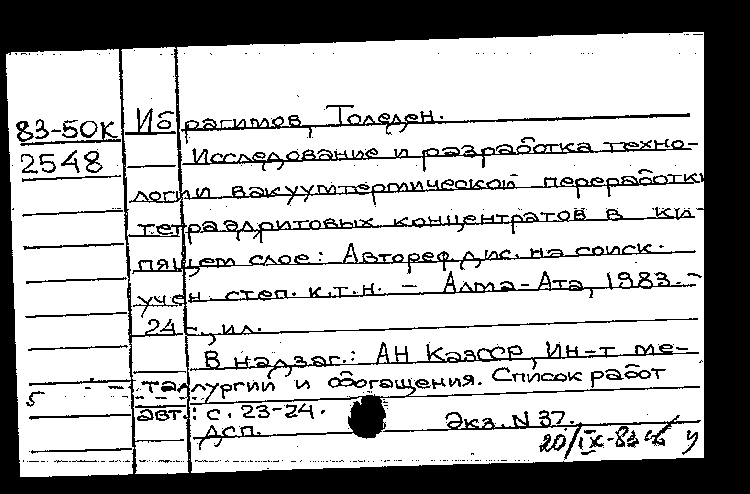 83-50К
2548
Ибрагимов, Толеген.
Исследование и разработка техно-
логии вакуумтермической переработки
тетраэдритовых концентратов в ки-
пящем слое: Автореф. дис. на соиск.
учен. степ. к.т.н. – Алма-Ата, 1983. –
24 с., ил.
В надзаг.: АН КазССР, Ин-т ме-
таллургии и обогащения. Список работ
5
авт.: с. 23-24.
Дсп. Экз. N 37.
20/IX-83